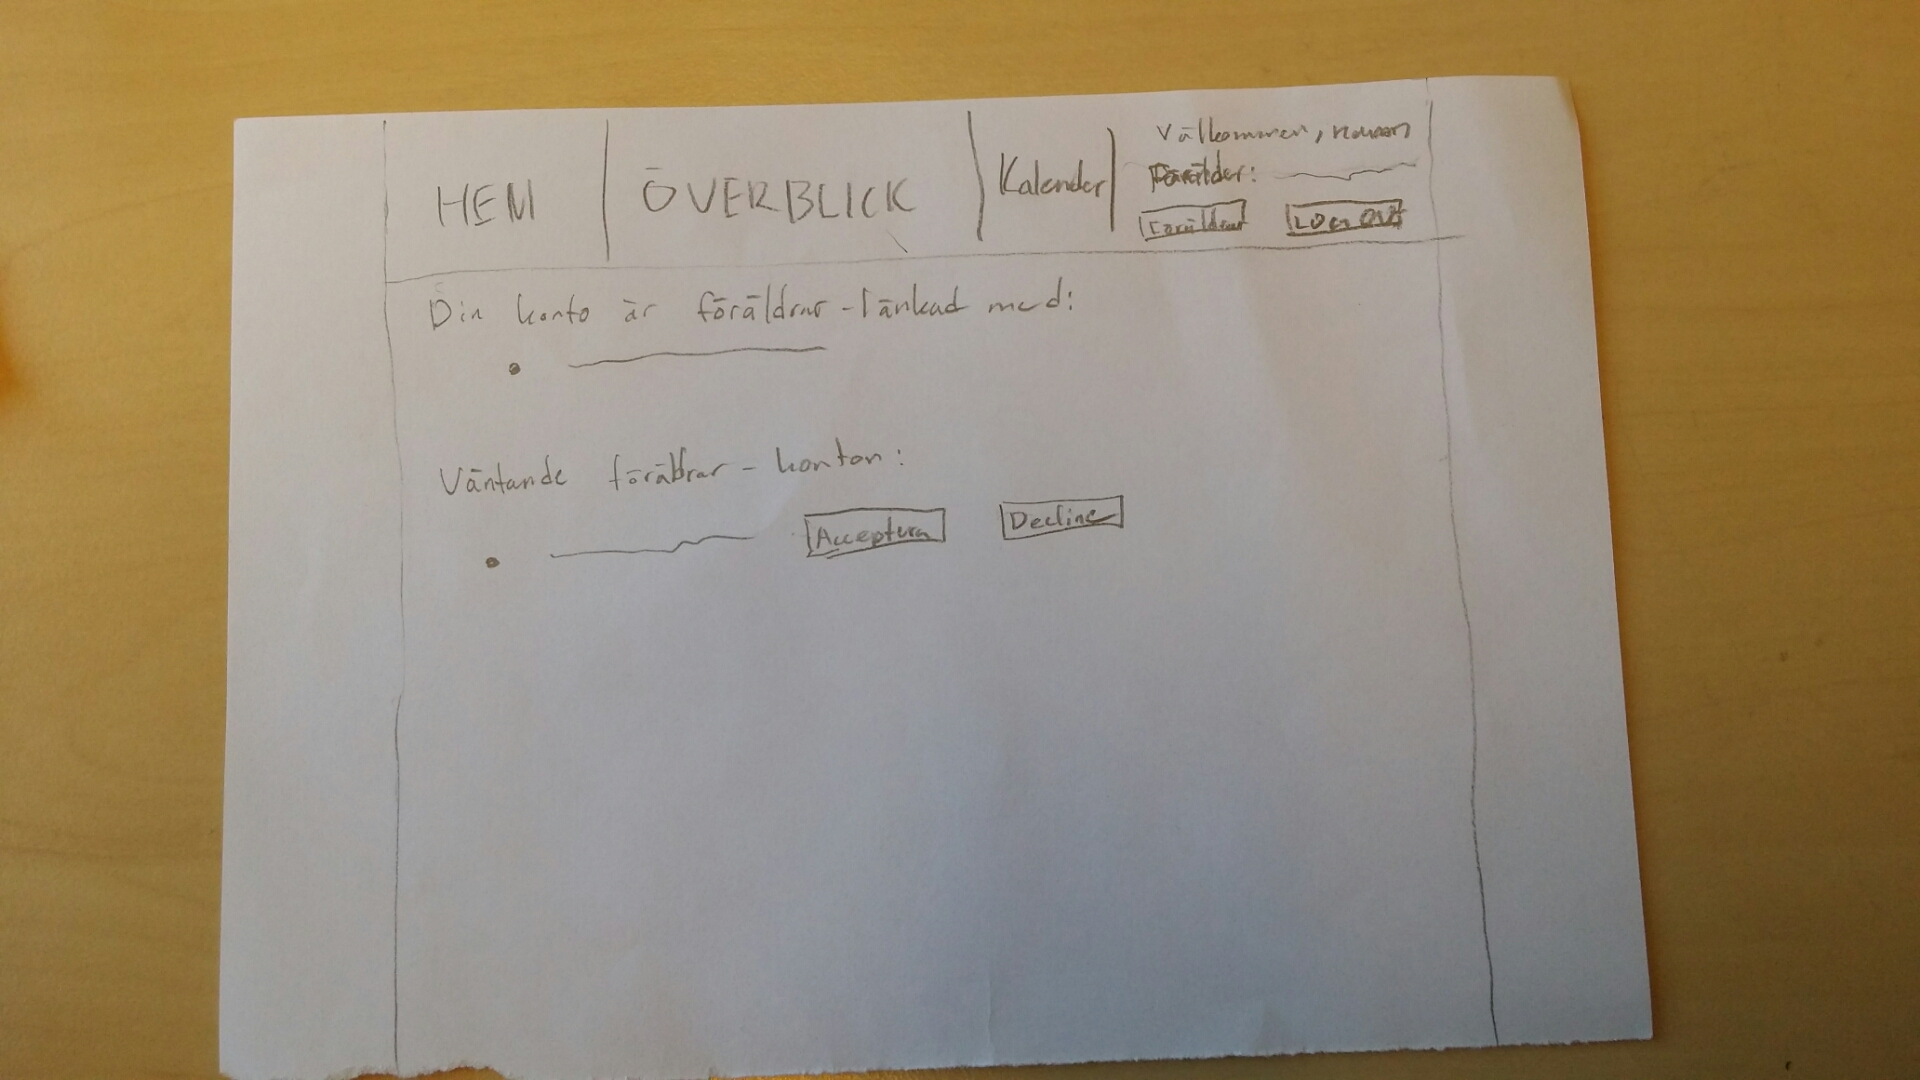 HEM
ÖVERBLICK
Kalender
Välkommen, namn
Förälder:
Föräldrar
LOG OUT
Din konto är föräldrar-länkad med:
Väntande föräldrar-konton:
Acceptera
Decline